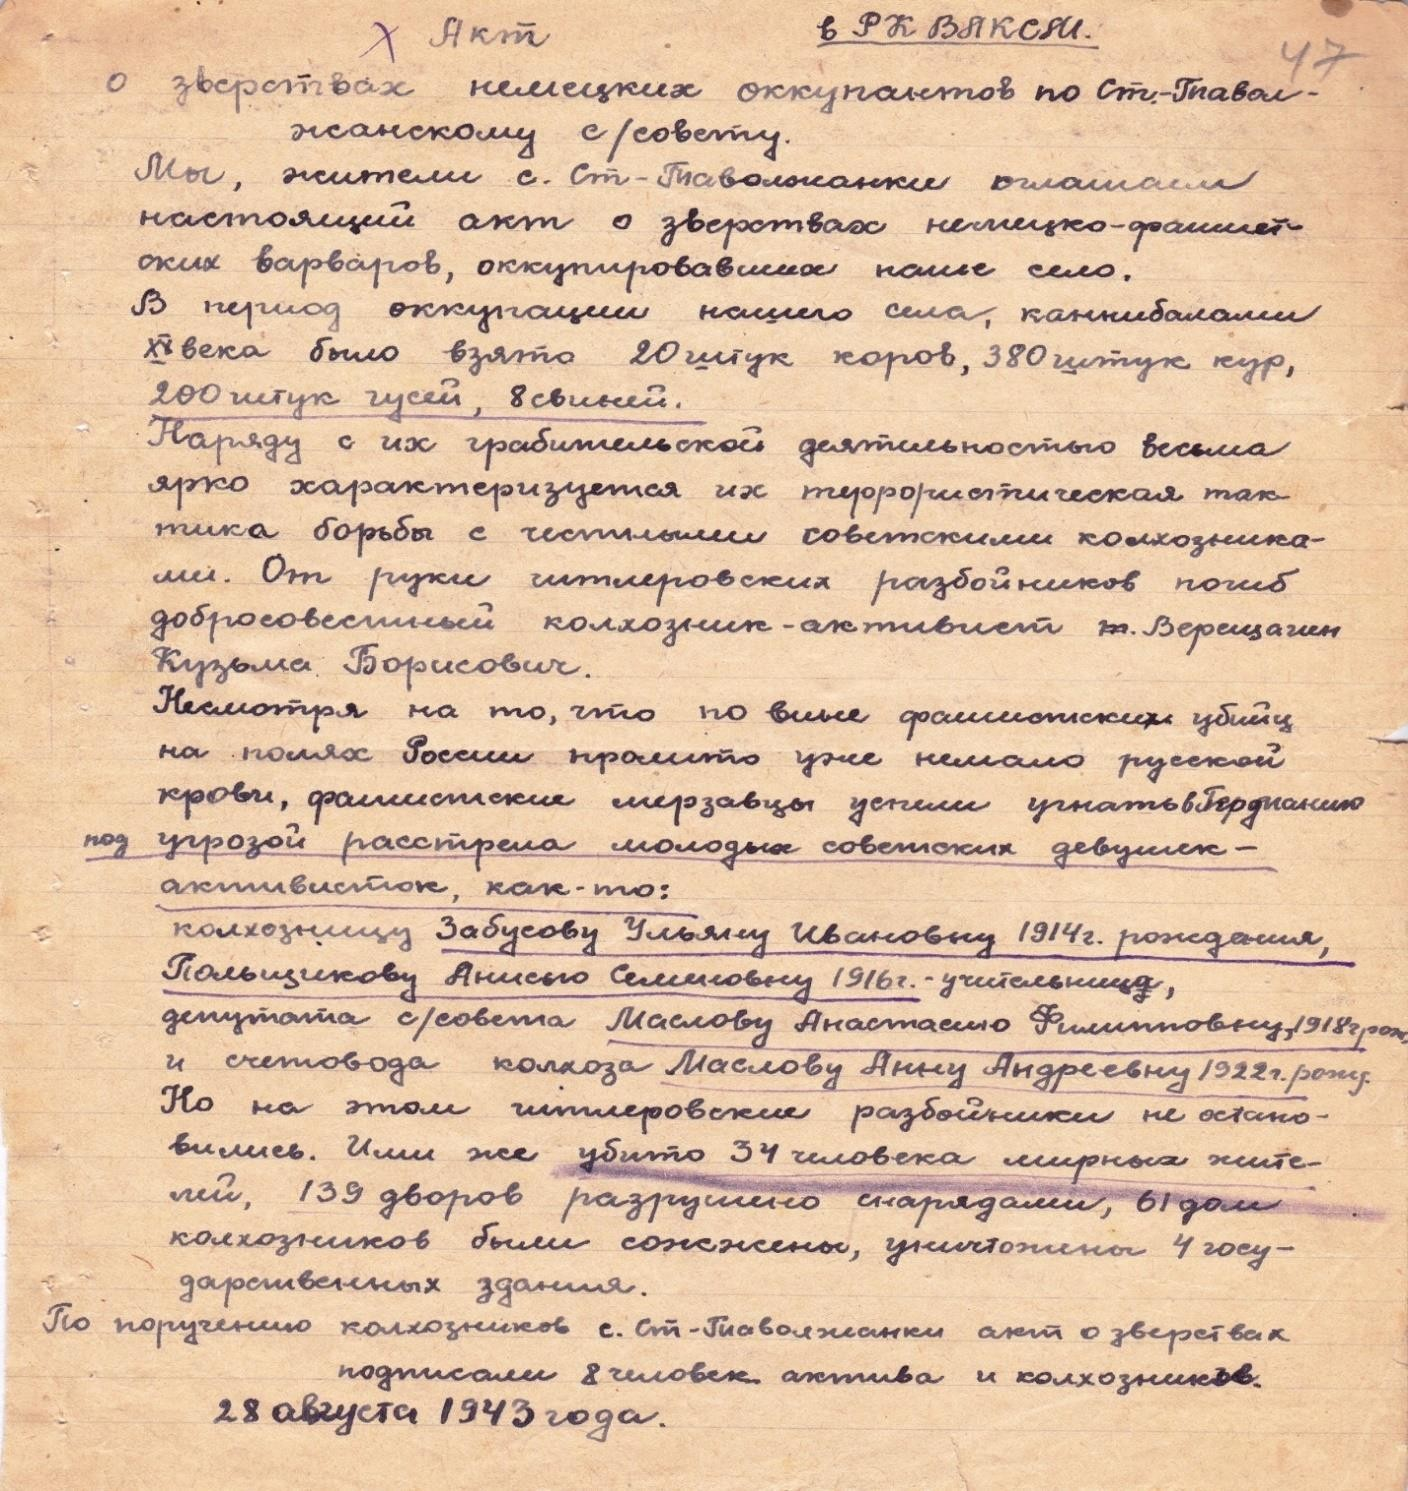 Акт
в РК ВЛКСМ.
47
о зверствах немецких оккупантов по Ст.-Тавол-
жанскому с/совету.
Мы, жители с. Ст-Таволжанки оглашаем
настоящий акт о зверствах немецко-фашист-
ских варваров, оккупировавших наше село.
В период оккупации нашего села, каннибалами
века было взято 20 штук коров, 380 штук кур,
200 штук гусей, 8 свиней.
Наряду с их грабительской деятельностью весьма
ярко характеризуется их террористическая так
тика борьбы с честными советскими колхозника-
ми. От руки гитлеровских разбойников погиб
добросовестный колхозник-активист т. Верещагин
Кузьма Борисович.
Несмотря на то, что по вине фашистских убийц
на полях России пролито уже немало русской
крови, фашистские мерзавцы успели угнать в Германию
под угрозой расстрела молодых советских девушек-
активисток, как-то:
колхозницу Забусову Ульяну Ивановну 1914г. рождения,
Польщикову Анисью Семеновну 1916г. - учительницу,
депутата с/совета Маслову Анастасию Филипповну, 1918г рож.
и счетовода колхоза Маслову Анну Андреевну 1922г. рожд.
Но на этом гитлеровские разбойники не остано-
вились. Ими же убито 34 человека мирных жите-
лей, 139 дворов разрушено снарядами, 61 дом
колхозников были сожжены, уничтожены 4 госу-
дарственных здания.
По поручению колхозников с. Ст-Таволжанки акт о зверствах
подписали 8 человек актива и колхозников.
28 августа 1943 года.